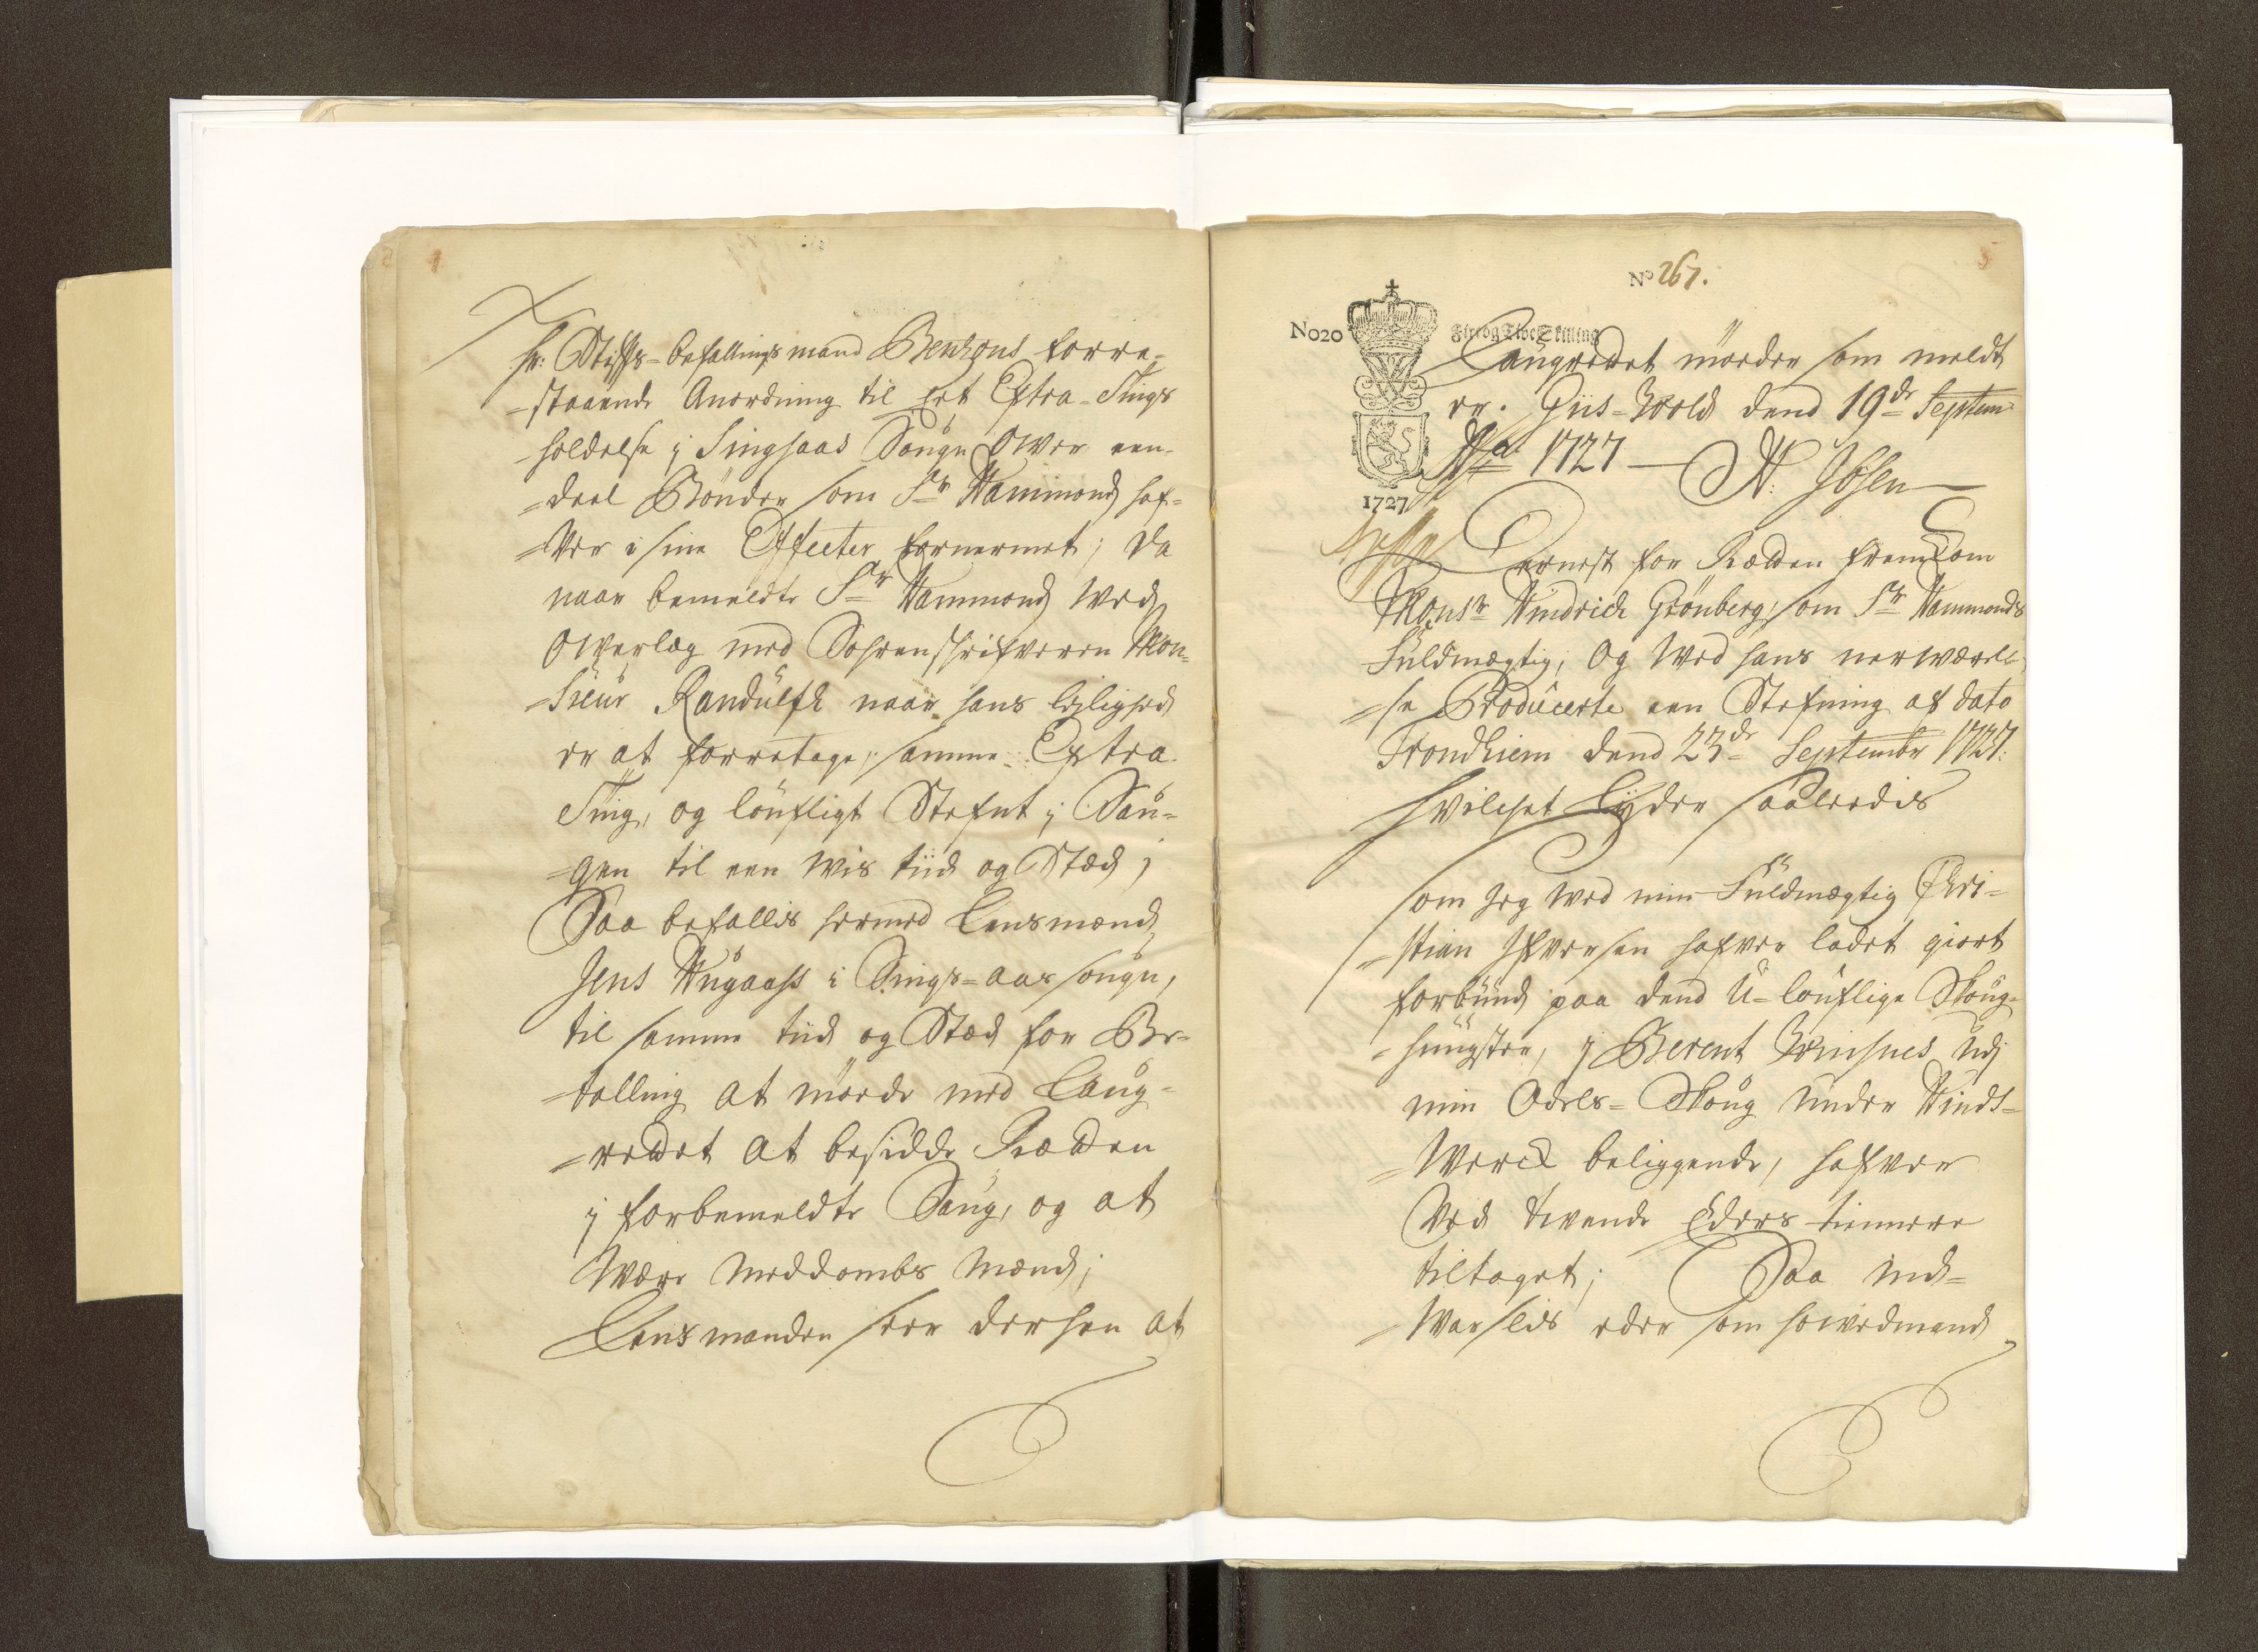 Hr: Stifts-befallingsmand Benzons forre-
-staaende Anordning til Eet Extra-Tings
-holdelse i Singsaas Sougn Over een-
-deel Bönder som Sr Hammond haf-
-ver i sine Effecter fornermet; da
naar bemeldte Sr Hammond Wed
Owerlæg med Sohrenskrifveren Mon-
-sieur Randulff naar hans leilighed
er at forretage, samme Extra
Ting, og löufligt Stefnt i Sou-
-gen til een wis tiid og Stæd;
Saa befallis hermed Lensmand
Jens Haugaass i Sings-aas sougn,
til samme tiid og Stæd for Be-
-talling at möede med Laug-
-redet at besidde Rætten
i forbemeldte Soug, og at
Være Meddombs Mænd;
Lensmanden seer dersen at
No 267.
No20
Fire og Tive Skilling
1727
Laugredet möeder som meldt
er. Giis-Wold dend 19de Septem:
Ao 1727 N: Ibsen
Dernest for Rætten fremkom
Monsr Hindrich Grönberg, som Sr Hammonds
Fuldmægtig; Og Wed hans nerwærel-
-se Producerte een Stefning af dato
Trondhiem dend 23de Septembr 1727.
hvilchet Lyder saaleedis
Som Jeg wed min Fuldmægtig Chri-
-stian Ifversen hafver ladet giort
forbund paa dend U-löuflige Skoug-
-hungster, i Berent udj
min Odels-Skoug under Hinds-
-Werck beliggende, hafver
Ved tvende Eders tiennere
tiltaget; Saa ind-
-Warslis eder som howedmand